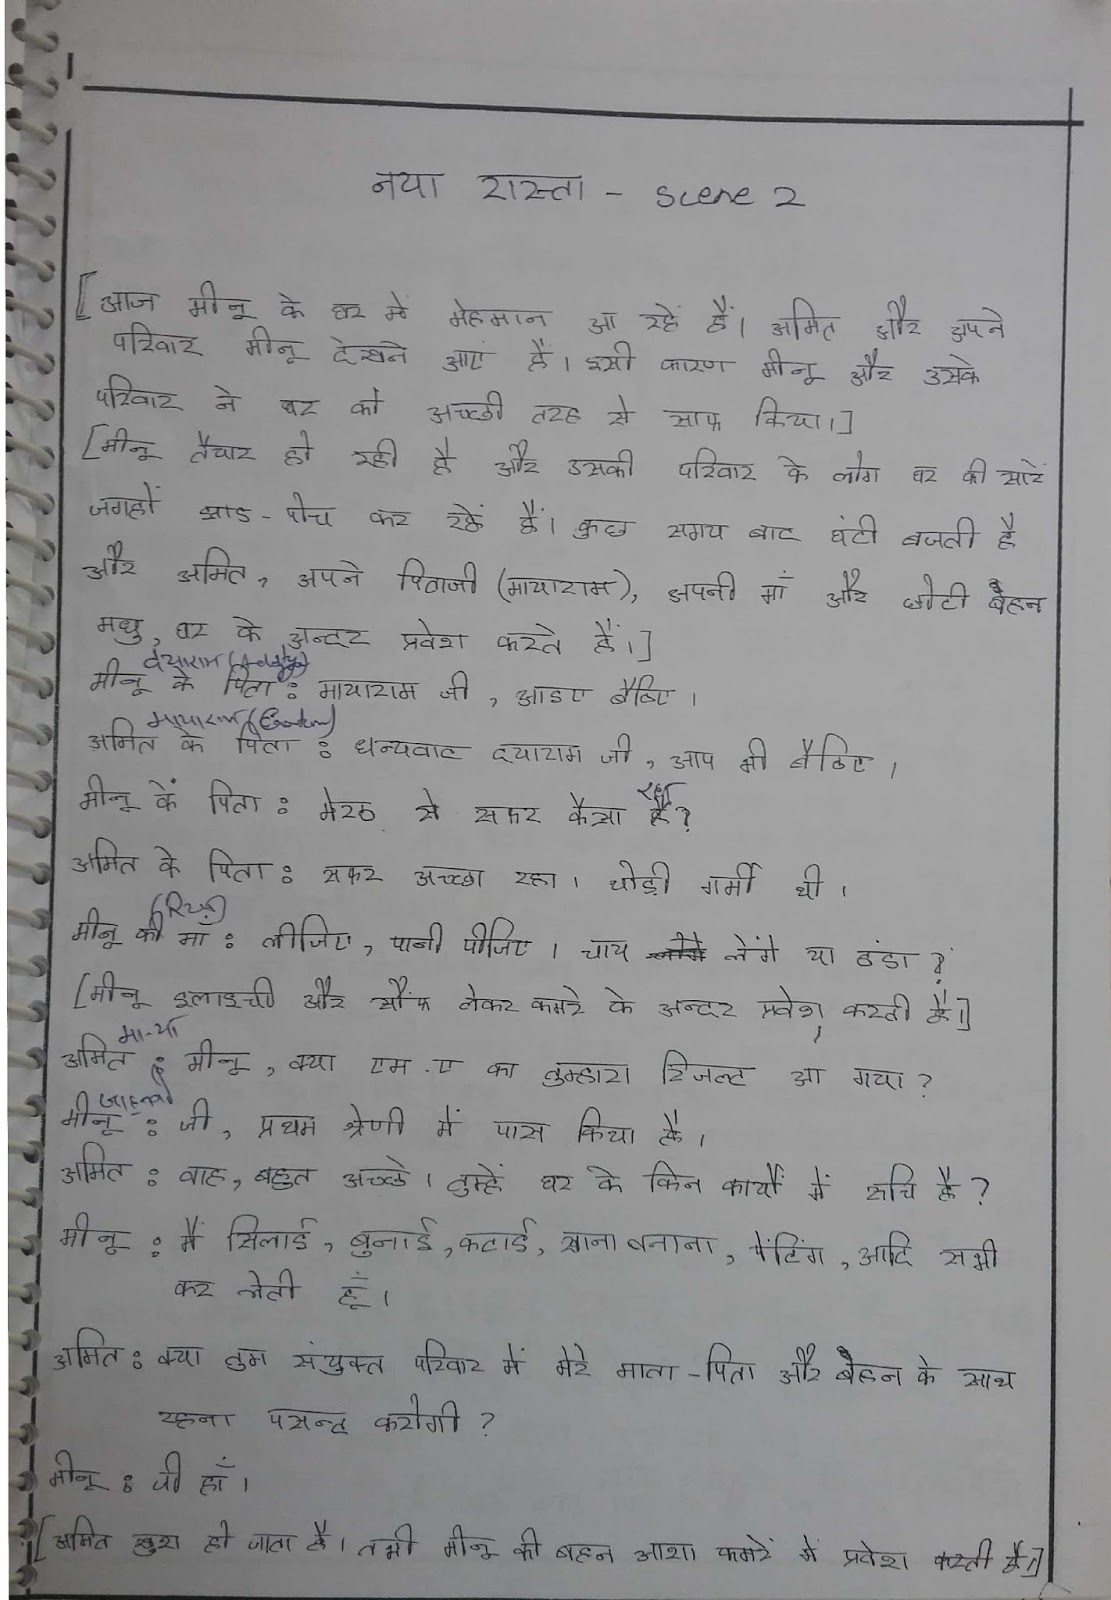 नया रास्ता - Scene 2
[आज मीनू के घर में मेहमान आ रहें हैं। अमित और अपने
परिवार मीनू देखने आएं हैं। इसी कारण मीनू और उसके
परिवार ने घर को अच्छी तरह से साफ़ किया।]
[मीनू तैयार हो रही है और उसकी परिवार के लोग घर की सारें
जगहों झाड-पोच कर रहें हैं। कुछ समय बाद घंटी बजती है
और अमित, अपने पिताजी (मायाराम), अपनी माँ और छोटी बेहन
मधु, घर के अन्दर प्रवेश करते हैं।]
दयाराम
मीनू के पिता : मायाराम जी, आइए बैठिए।
मायाराम
अमित के पिता : धन्यवाद दयाराम जी, आप भी बैठिए।
रहा
मीनू कें पिता : मेरठ से सफर कैसा है?
अमित के पिता : सफर अच्छा रहा। थोड़ी गर्मी थी।
मीनू की माँ : लीजिए, पानी पीजिए। चाय लेंगे या ठंडा?
[मीनू इलाइची और सौंफ लेकर कमरे के अन्दर प्रवेश करती है।]
अमित : मीनू, क्या एम.ए का तुम्हारा रिजल्ट आ गया?
मीनू : जी, प्रथम श्रेणी में पास किया है।
अमित : वाह, बहुत अच्छे। तुम्हें घर के किन कार्यों में रुचि है?
मीनू : मैं सिलाई, बुनाई, कटाई, खाना बनाना, पेंटिंग, आदि सभी
कर लेती हूँ।
अमित : क्या तुम संयुक्त परिवार में मेरे माता-पिता और बेहन के साथ
रहना पसन्द करोगी?
मीनू : जी हाँ।
[अमित खुश हो जाता है। तभी मीनू की बहन आशा कमरें में प्रवेश करती है।]